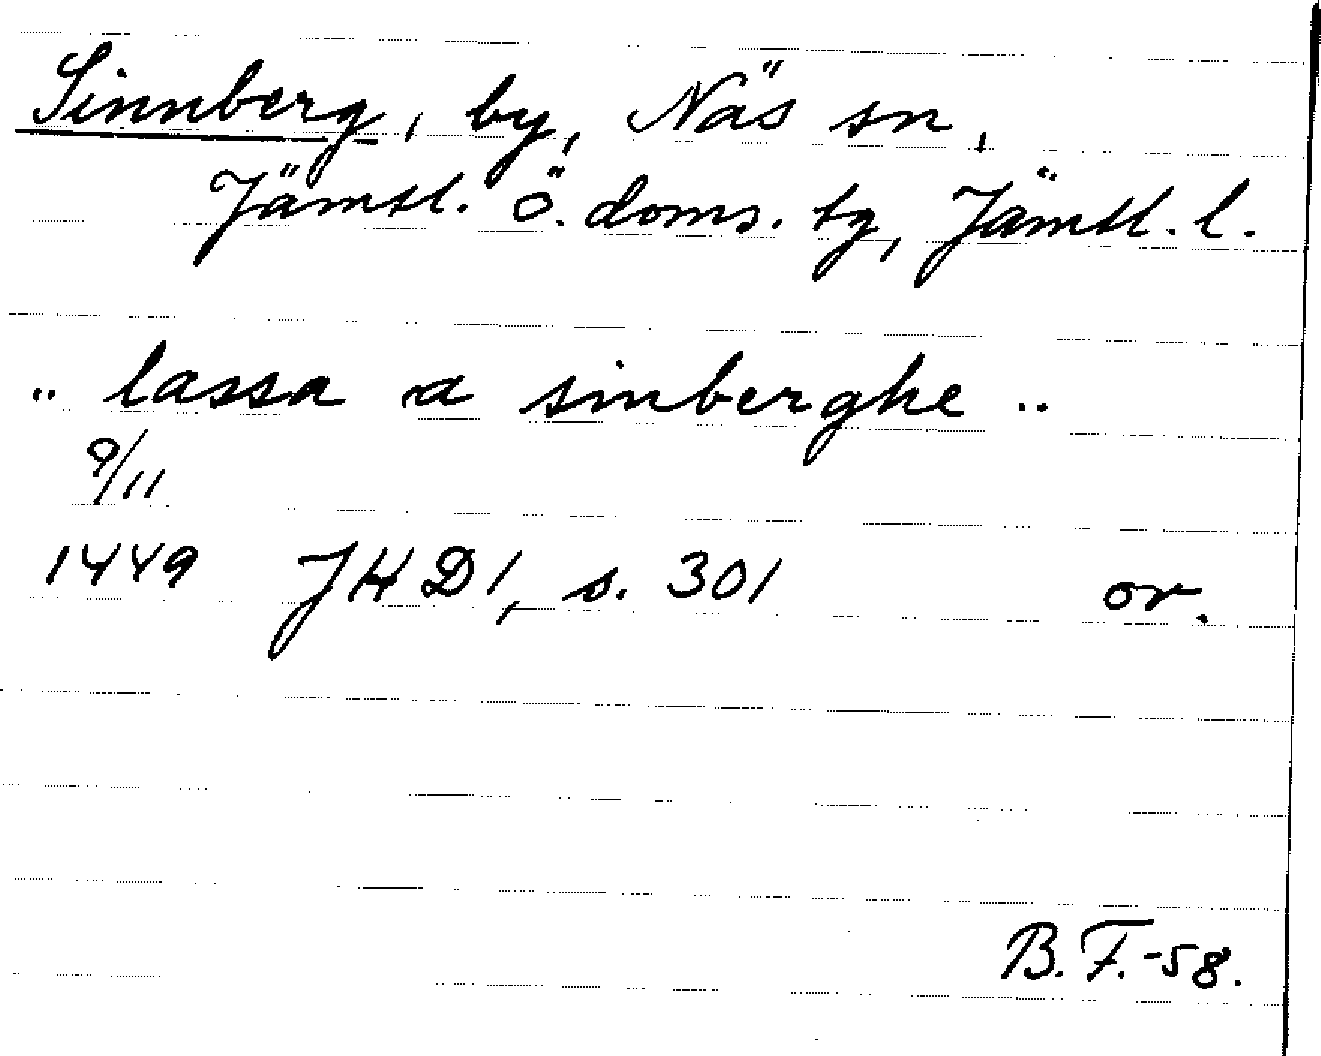 Sinnberg, by, Näs sn,
Jämtl. ö. doms. tg, Jämtl. l.
.. lassa a sinberghe ..
9/11
1449 JHD1, s. 301 or.
B.F.-58.